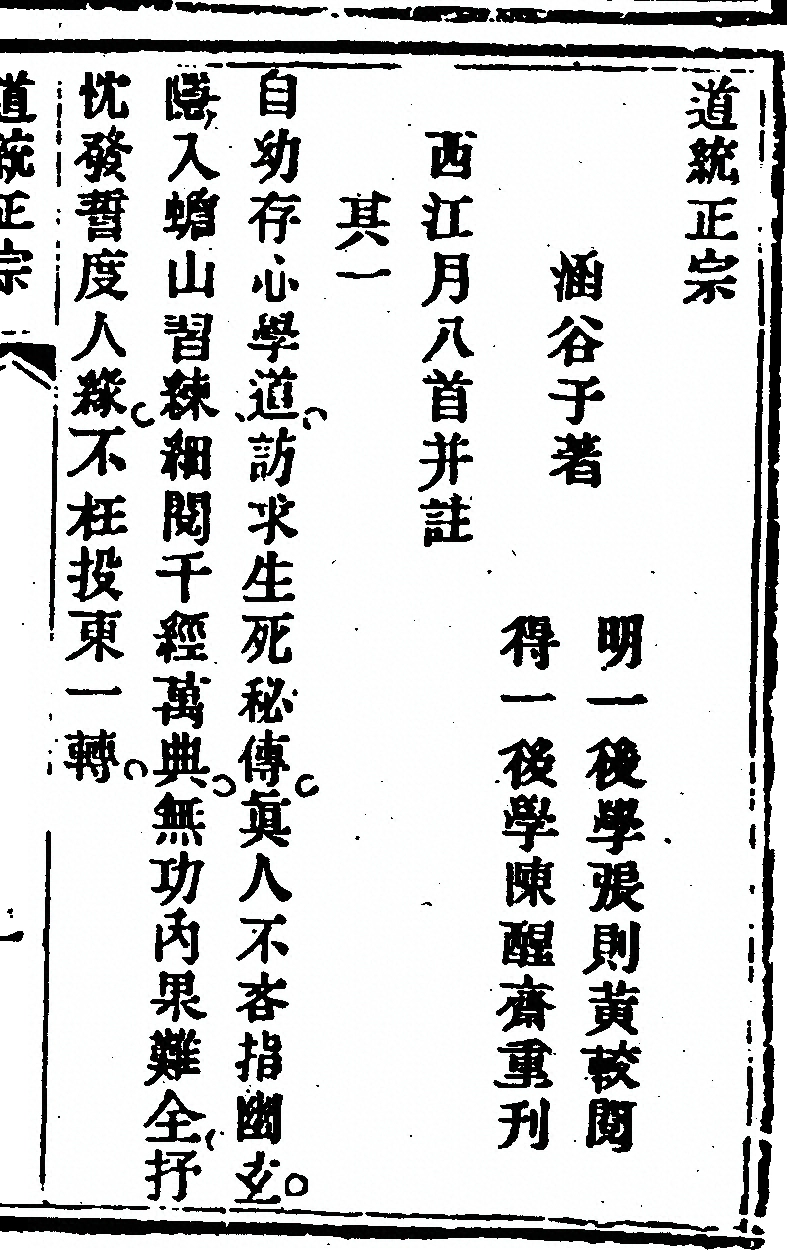 道統正宗
涵谷子著
明一後學張則黃較閱
得一後學陳醒齋重刊
西江月八首并註
其一
自幼存心學道訪求生死秘傳真人不吝指幽玄
隱入蟾山習練細閱千經萬典無功內果難全抒
忱發誓度人緣不枉投東一轉
道統正宗
一